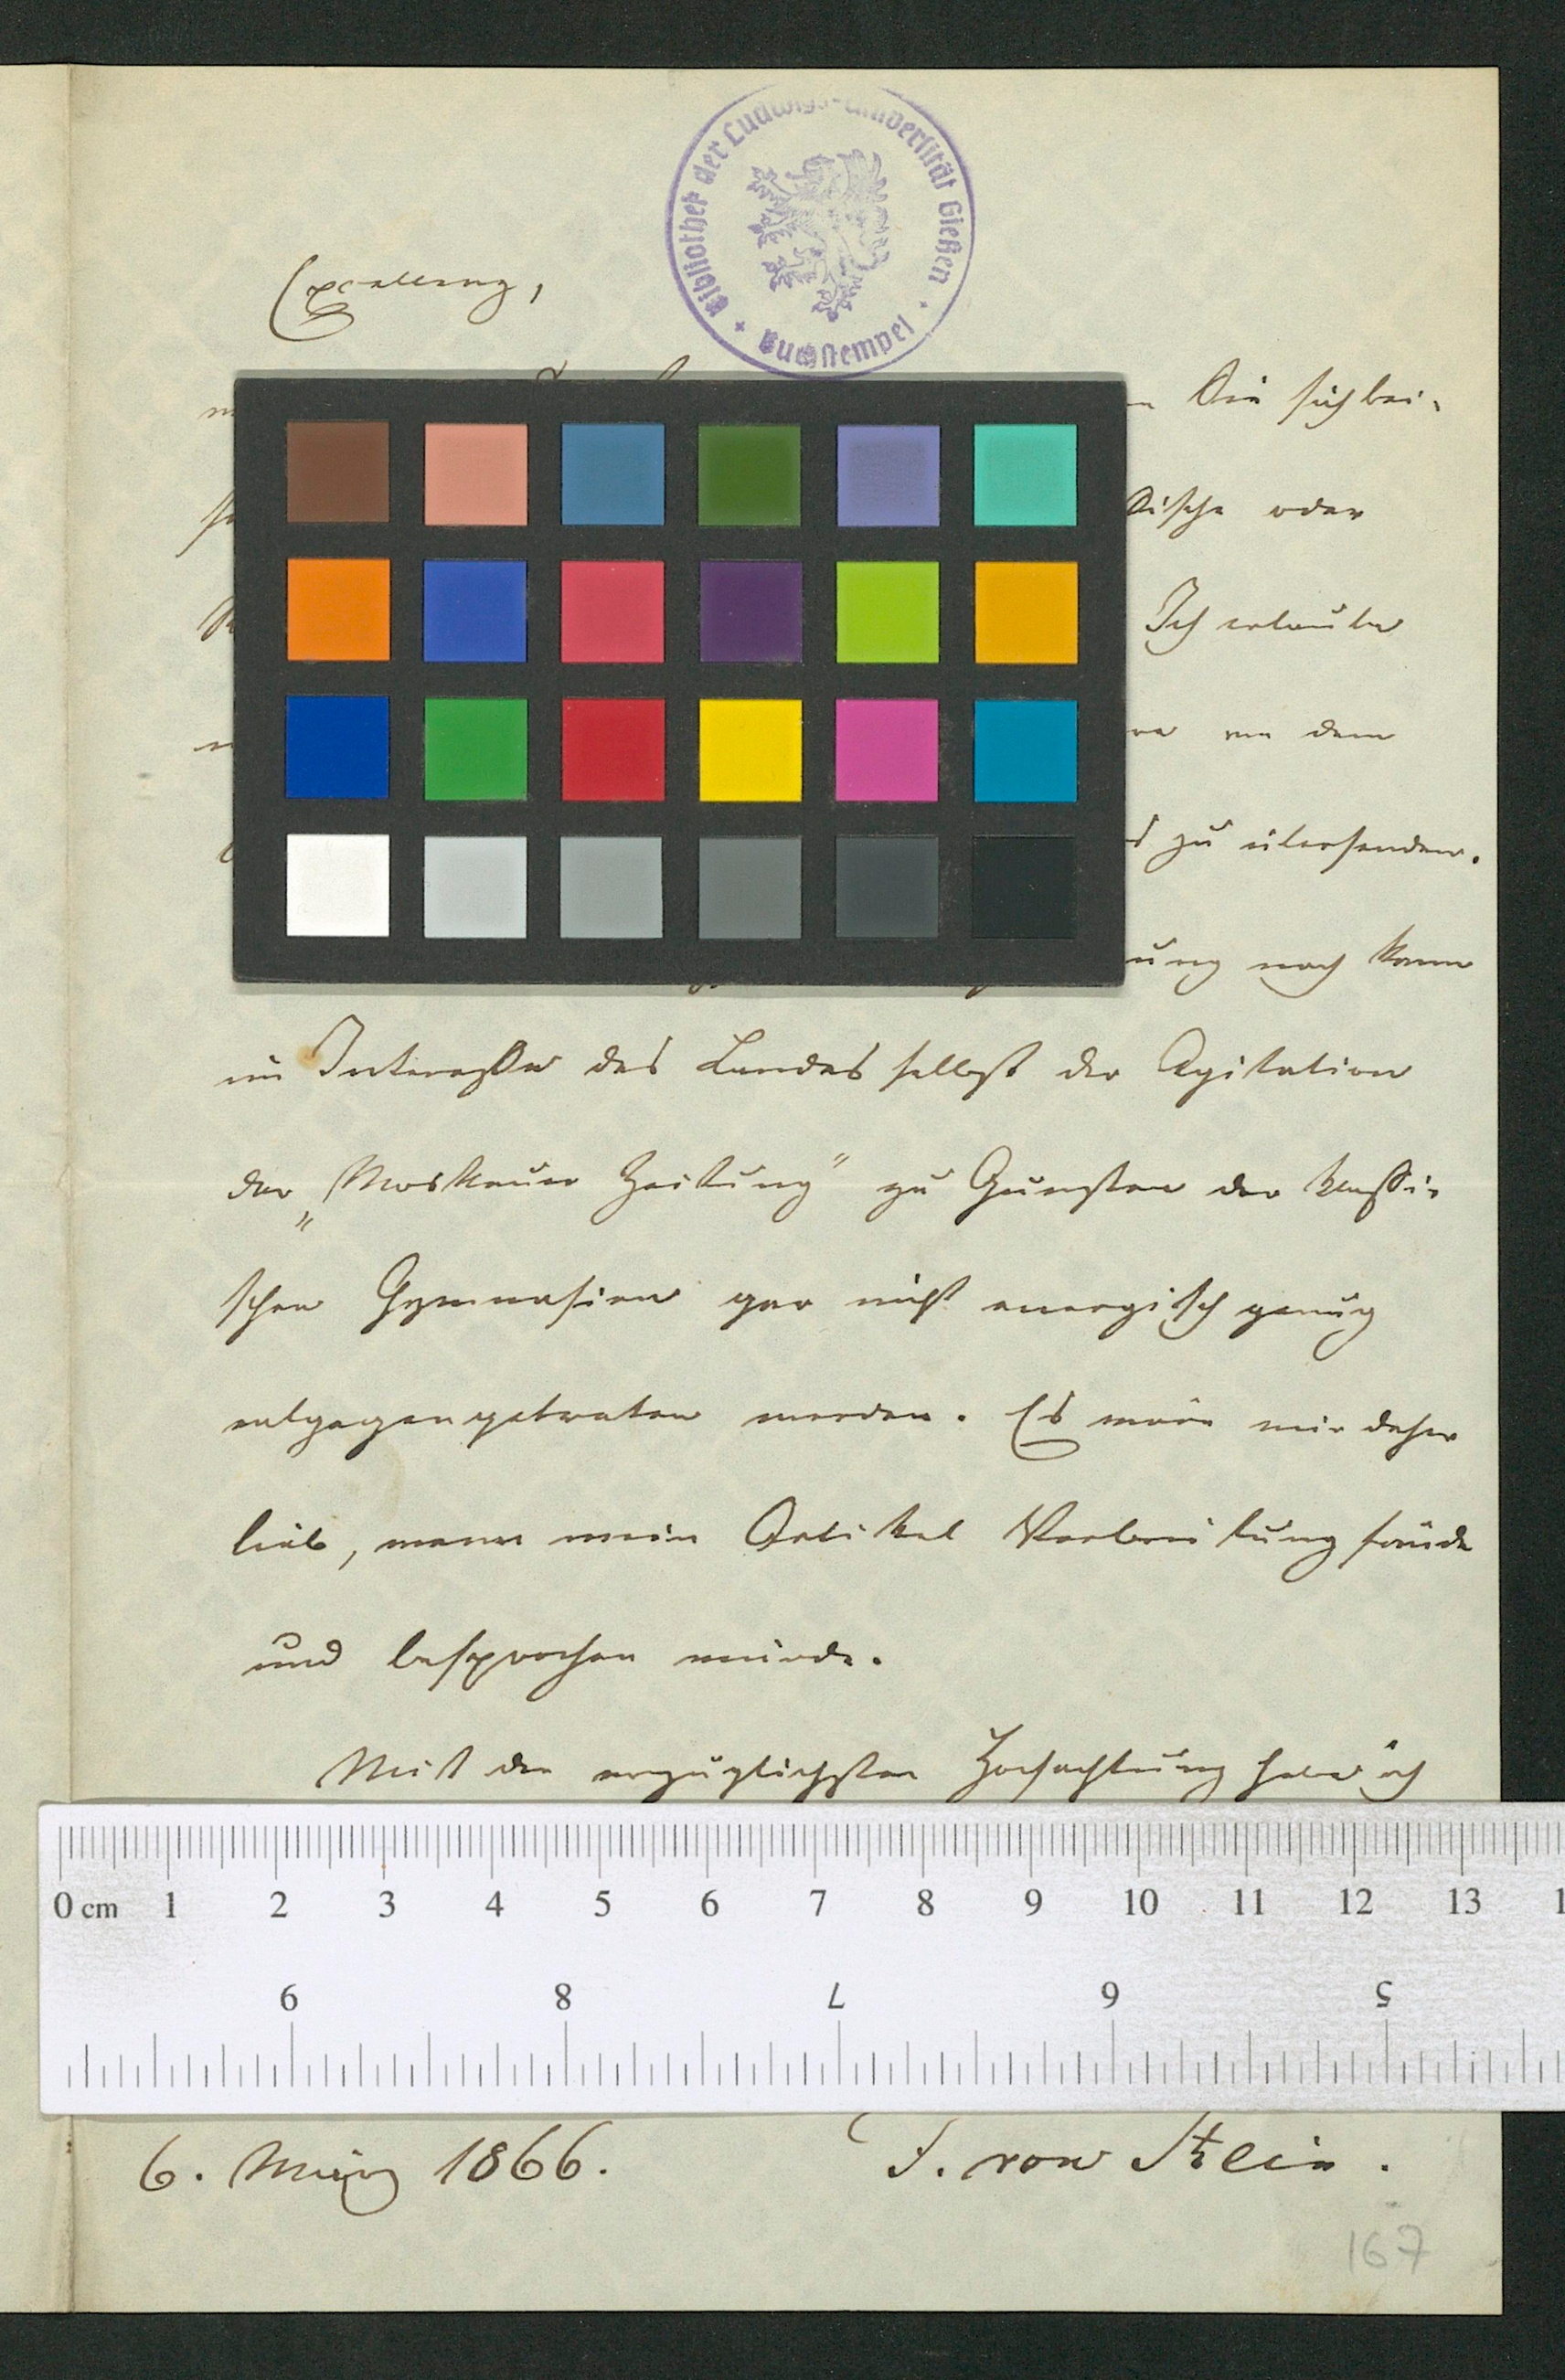 Bibliothek der Ludwigs-Universität Gießen
Buchstempel
Excellenz,
Sie sich bei-
oder
Ich erlaube
dem
zu übersenden.
nach kann
im Interesse des Landes selbst der Agitation
der „Moskauer Zeitung“ zu Gunsten der klassi-
schen Gymnasien gar nicht energisch genug
entgegengetreten werden. Es wäre mir daher
lieb, wenn mein Artikel Verbreitung fände
und besprochen würde.
Mit der vorzüglichsten Hochachtung habe ich
0 cm 1 2 3 4 5 6 7 8 9 10 11 12 13
9 8 7 6 5
6. März 1866. F. von Stein.
167